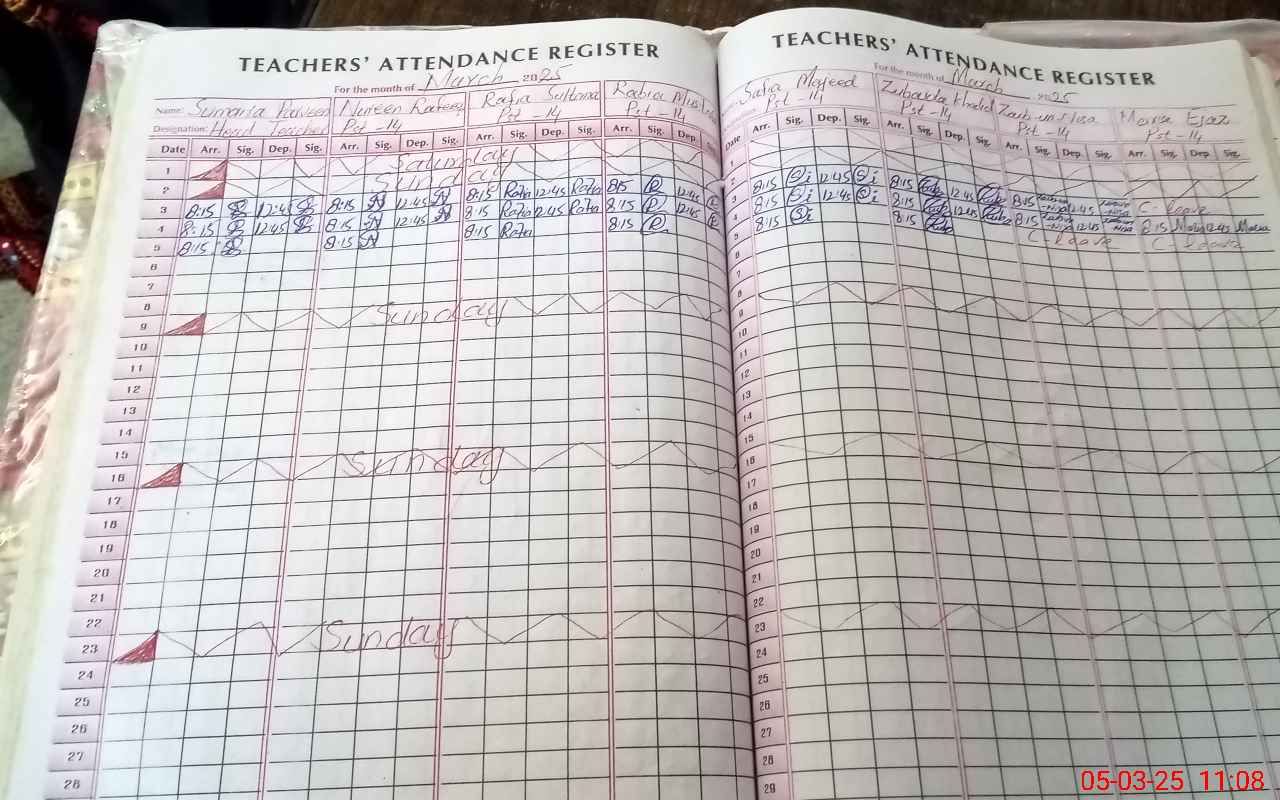 TEACHERS' ATTENDANCE REGISTER
For the month of March 2025
Name: Sumaria Parveen Nureen Rafeeq Rafia Sultana Rabia
Designation: Head Teacher Pst -14 Pst -14 Pst -14
Date Arr. Sig. Dep. Sig. Arr. Sig. Dep. Sig. Arr. Sig. Dep. Sig. Arr. Sig. Dep. Sig.
1 Saturday
2 Sunday
3 8:15 12:45 8:15 12:45 8:15 Rafia 12:45 Rafia 8:15 R 12:45
4 8:15 12:45 8:15 12:45 8:15 Rafia 12:45 Rafia 8:15 R 12:45
5 8:15 8:15 8:15 Rafia 8:15 R
6
7
8
9 Sunday
10
11
12
13
14
15
16 Sunday
17
18
19
20
21
22
23 Sunday
24
25
26
27
28
TEACHERS' ATTENDANCE REGISTER
For the month of March 2025
Safia Majeed Zubaida Khalid Zaib-un-Nisa Maria Ejaz
Pst -14 Pst -14 Pst -14 Pst -14
Date Arr. Sig. Dep. Sig. Arr. Sig. Dep. Sig. Arr. Sig. Dep. Sig. Arr. Sig. Dep. Sig.
1
2
3 8:15 Si 12:45 Si 8:15 12:45 8:15 12:45 C-leave
4 8:15 Si 12:45 Si 8:15 12:45 8:15 12:45 8:15 Maria 12:45 Maria
5 8:15 Si 8:15 C-leave C-leave
6
7
8
9
10
11
12
13
14
15
16
17
18
19
20
21
22
23
24
25
26
27
28
29
05-03-25 11:08